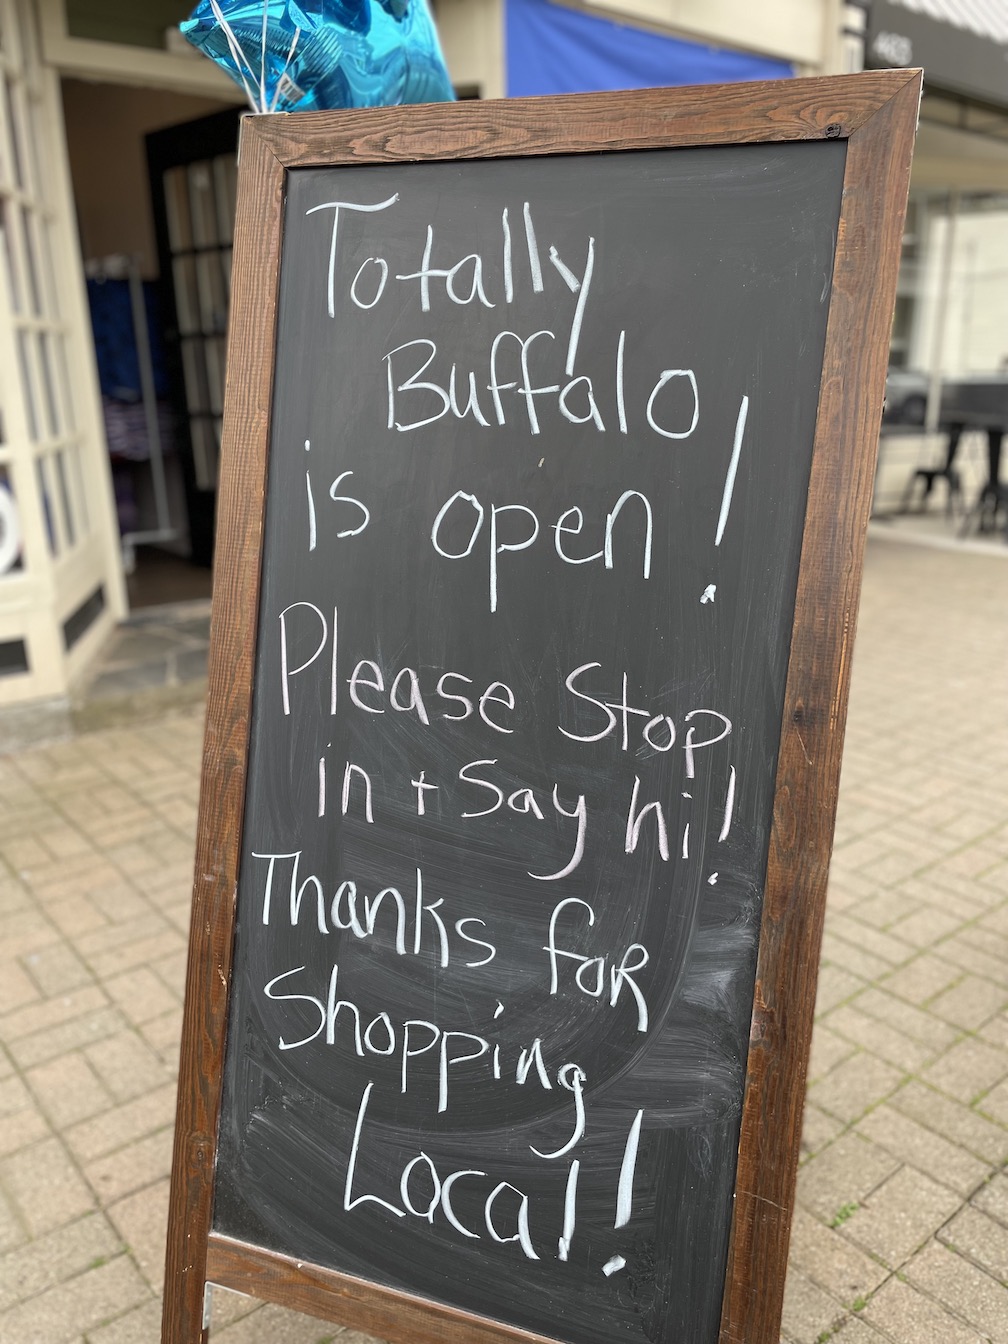 Totally
Buffalo
is open!
Please Stop
in + Say hi!
Thanks foR
Shopping
Local!